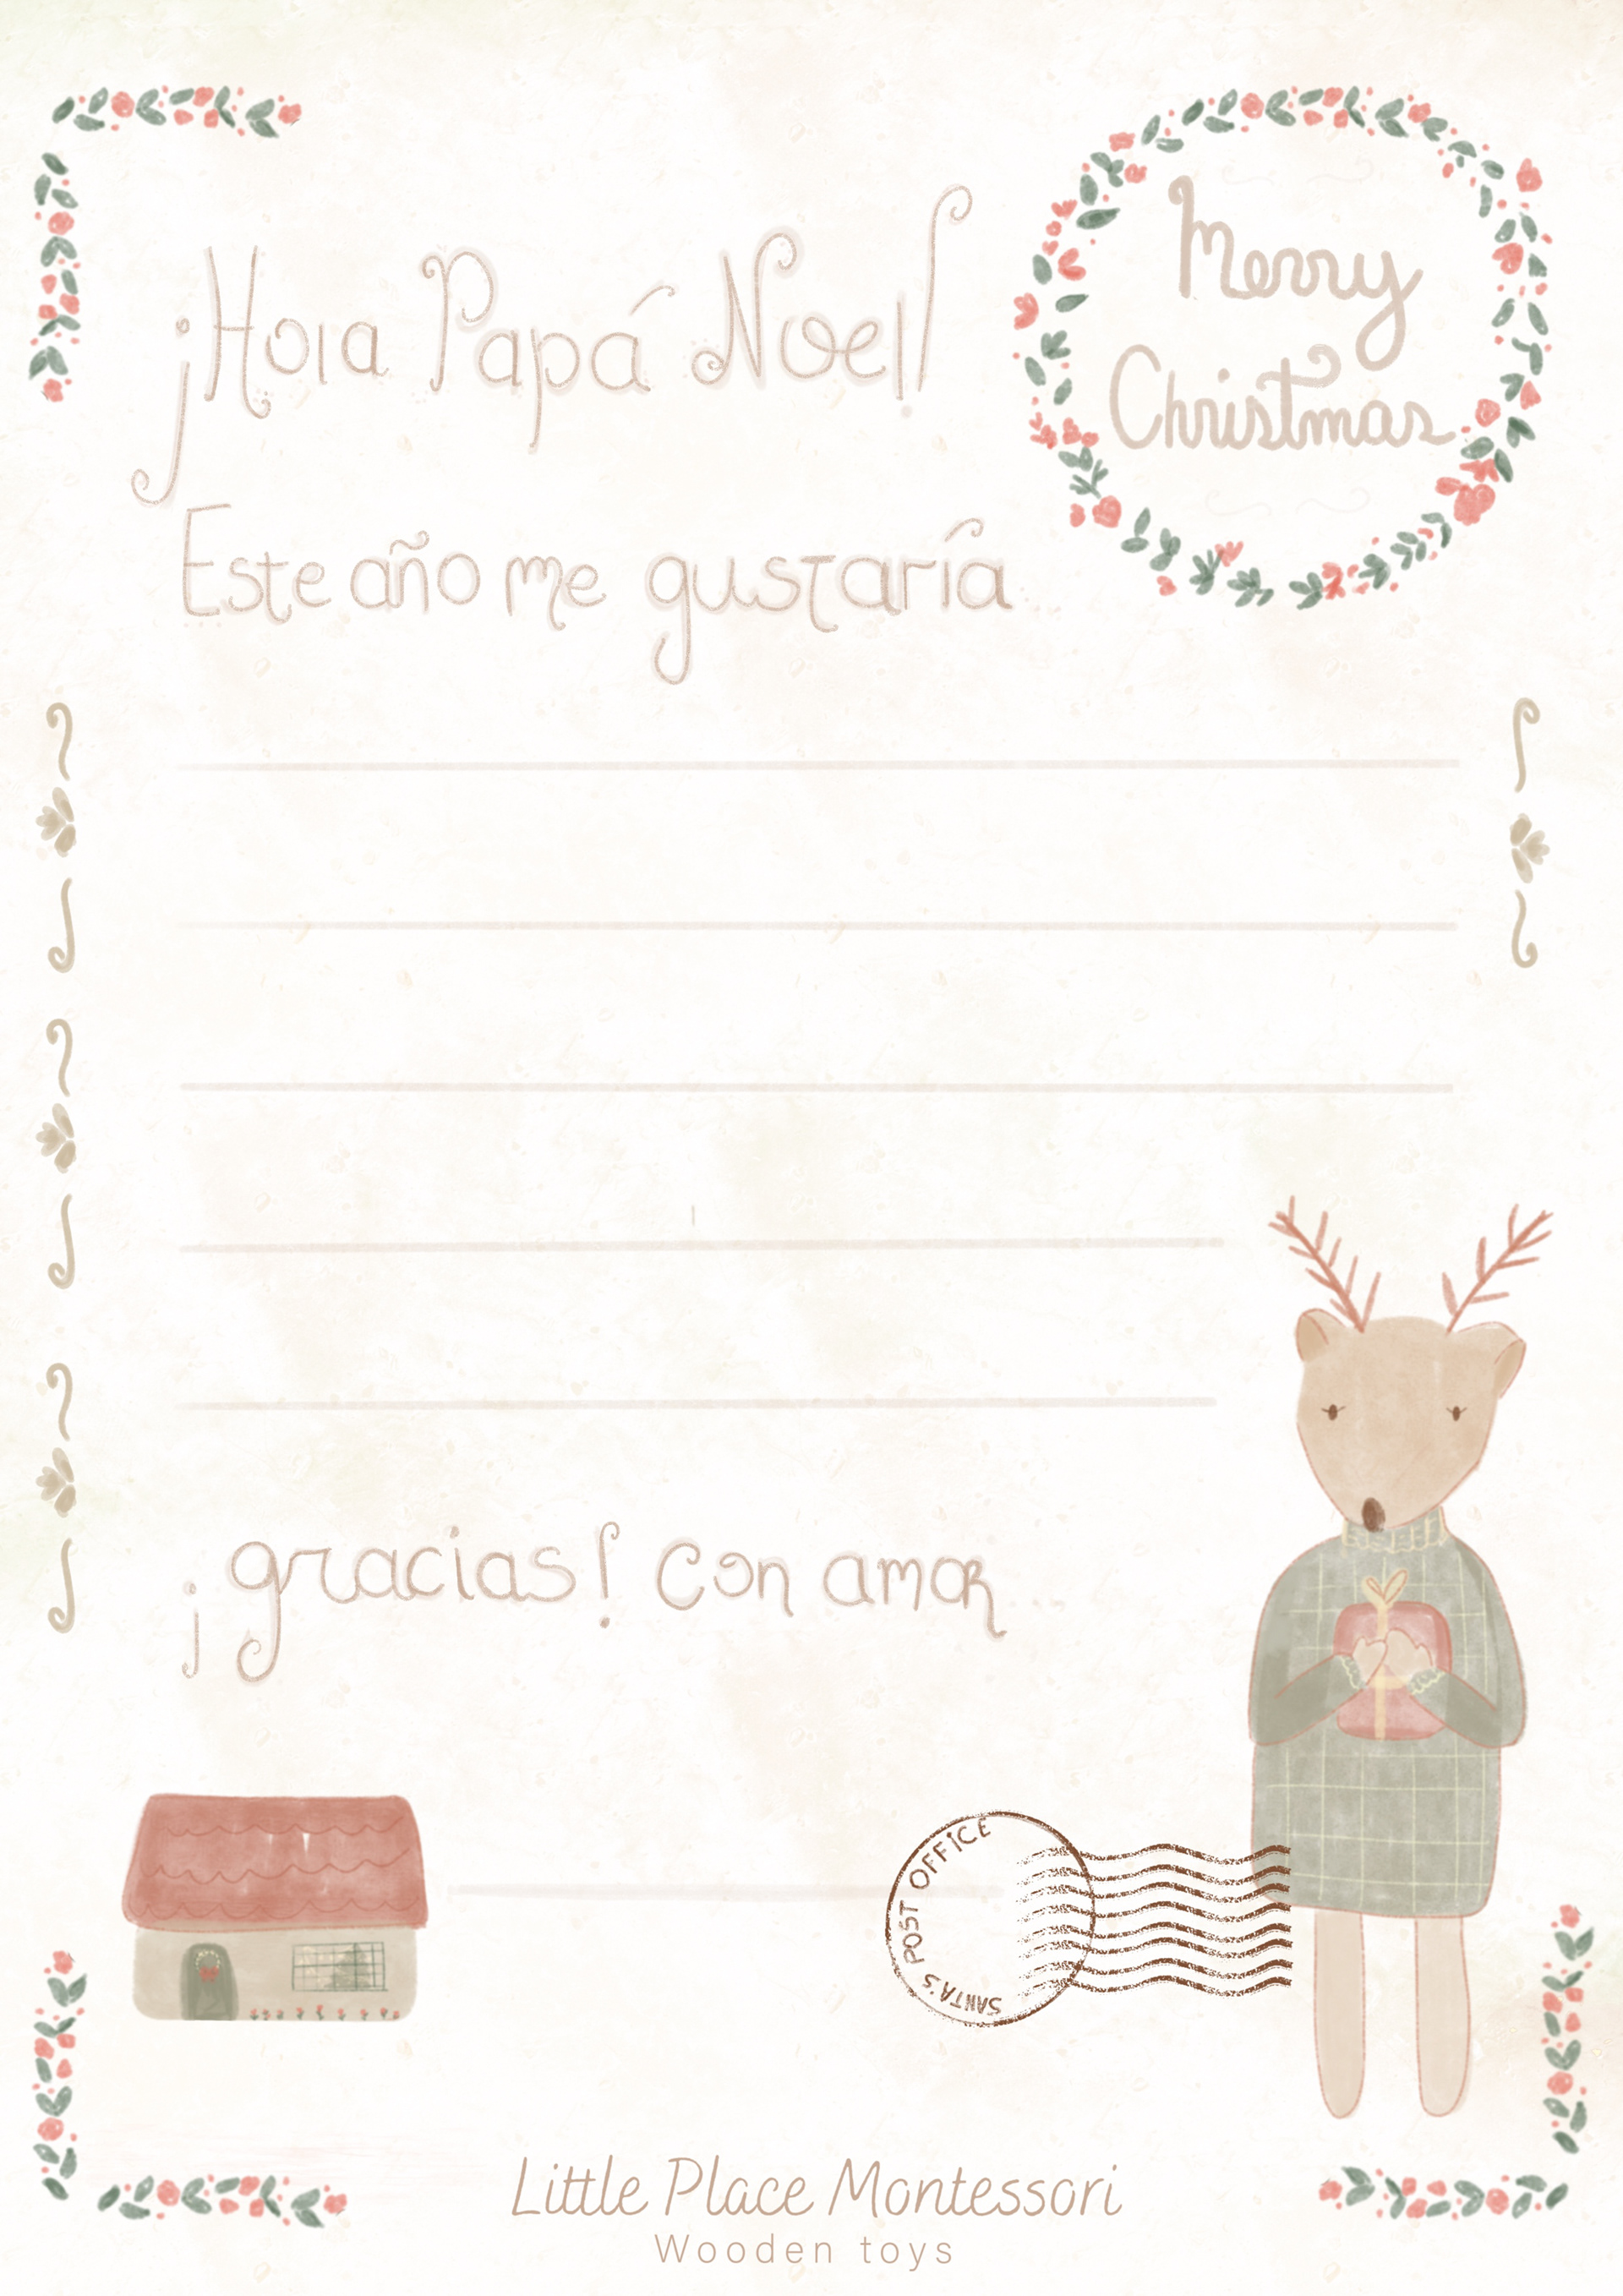 ¡Hola Papá Noel!
Merry
Christmas
Este año me gustaría
¡gracias! con amor
SANTA'S POST OFFICE
Little Place Montessori
Wooden toys